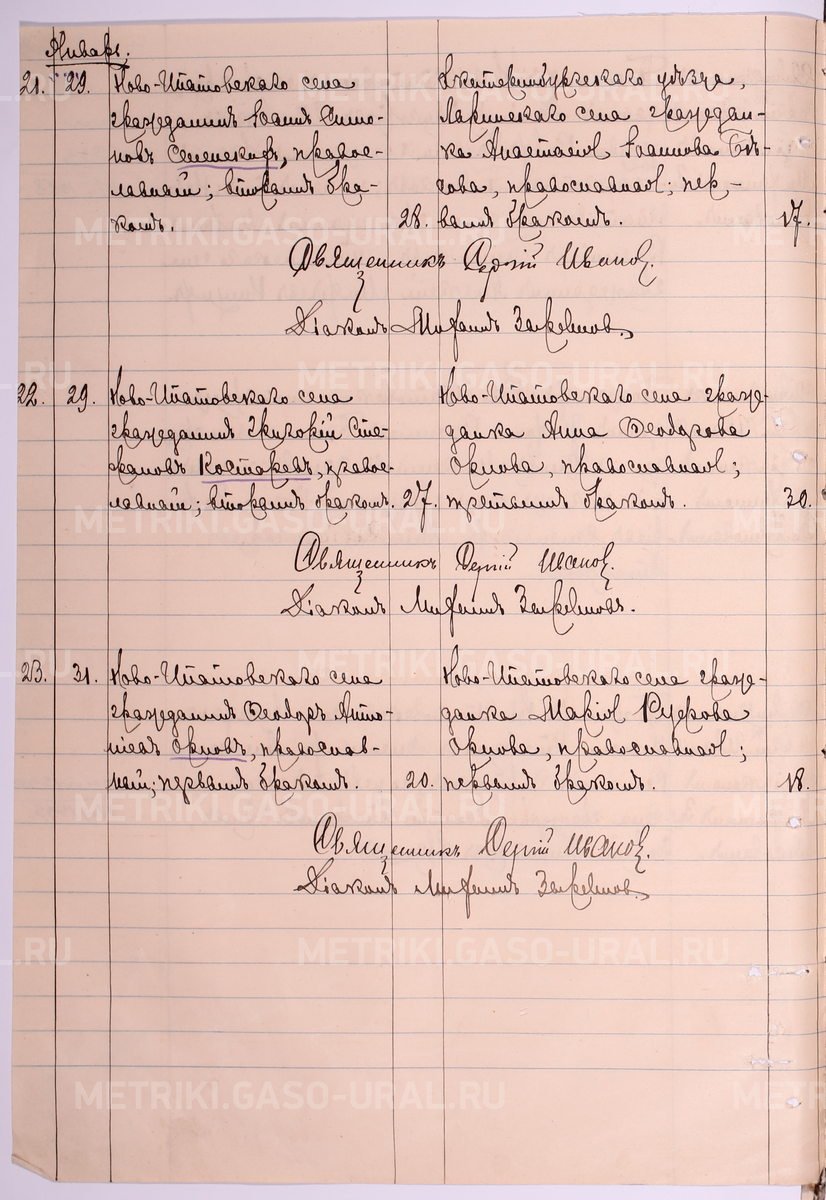 Январь.
21. 29. Ново-Ипатовскаго села
гражданинъ Іоаннъ Симо-
новъ, правос-
лавный; вторымъ бра-
комъ. 28.
Екатеринбургскаго уѣзда,
Ларинскаго села граждан-
ка Анастасія Іоаннова Бѣ-
сова, православная; пер-
вымъ бракомъ. 17.
Священникъ Сергій Иванов.
Діаконъ
22. 29. Ново-Ипатовскаго села
гражданинъ Григорій Сте-
фановъ Костаревъ, правос-
лавный; вторымъ бракомъ. 27.
Ново-Ипатовскаго села граж-
данка Анна Ѳеодорова
Орлова, православная;
третьимъ бракомъ. 30.
Священникъ Сергій Иванов.
Діаконъ
23. 31. Ново-Ипатовскаго села
гражданинъ Ѳеодоръ Анто-
ніевъ Орловъ, православ-
ный; первымъ бракомъ. 20.
Ново-Ипатовскаго села граж-
данка Марія Руфова
Орлова, православная;
первымъ бракомъ. 18.
Священникъ Сергій Иванов.
Діаконъ
METRIKI.GASO-URAL.RU